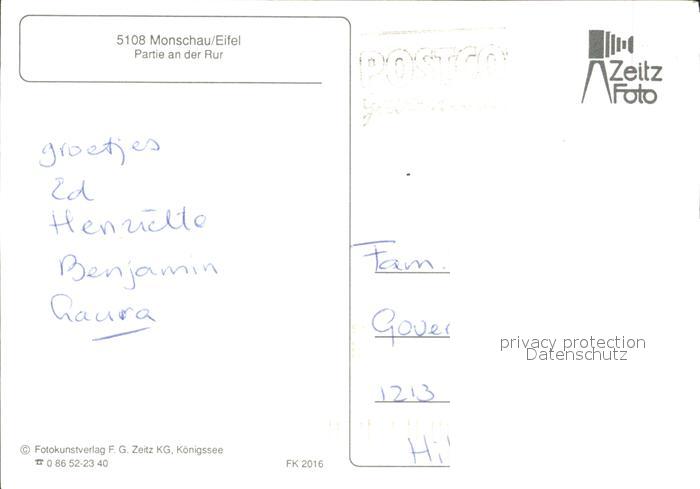 5108 Monschau/Eifel
Partie an der Rur
POSTCO
Zeitz
Foto
groetjes
Ed
Henriëtte
Benjamin
Laura
Fam.
Gover
privacy protection
Datenschutz
1213
Hil
© Fotokunstverlag F. G. Zeitz KG, Königssee
☎ 0 86 52-23 40
FK 2016